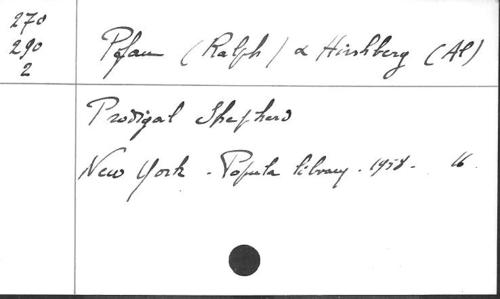 270
290
2
Pfau (Ralph) & Hirshberg (Al)
Prodigal Shepherd
New York - Popular library - 1958 - 16